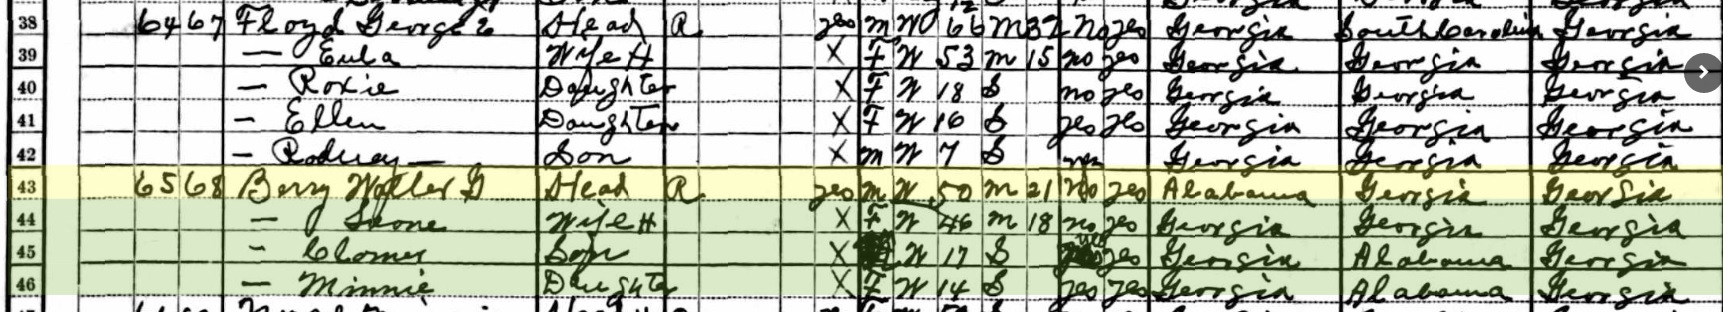 38 64 67 Floyd George E Head R yes M W 66 M 32 No yes Georgia South Carolina Georgia
39 — Eula Wife H X F W 53 M 15 no yes Georgia Georgia Georgia
40 — Roxie Daughter X F W 18 S no yes Georgia Georgia Georgia
41 — Ellen Daughter X F W 16 S yes yes Georgia Georgia Georgia
42 — Rodney — Son X M W 7 S Georgia Georgia Georgia
43 65 68 Berry Walter G Head R yes M W 50 M 21 No yes Alabama Georgia Georgia
44 — Wife H X F W 46 M 18 no yes Georgia Georgia Georgia
45 — Clomer Son X W 17 S yes Georgia Alabama Georgia
46 — Minnie Daughter X F W 14 S yes yes Georgia Alabama Georgia